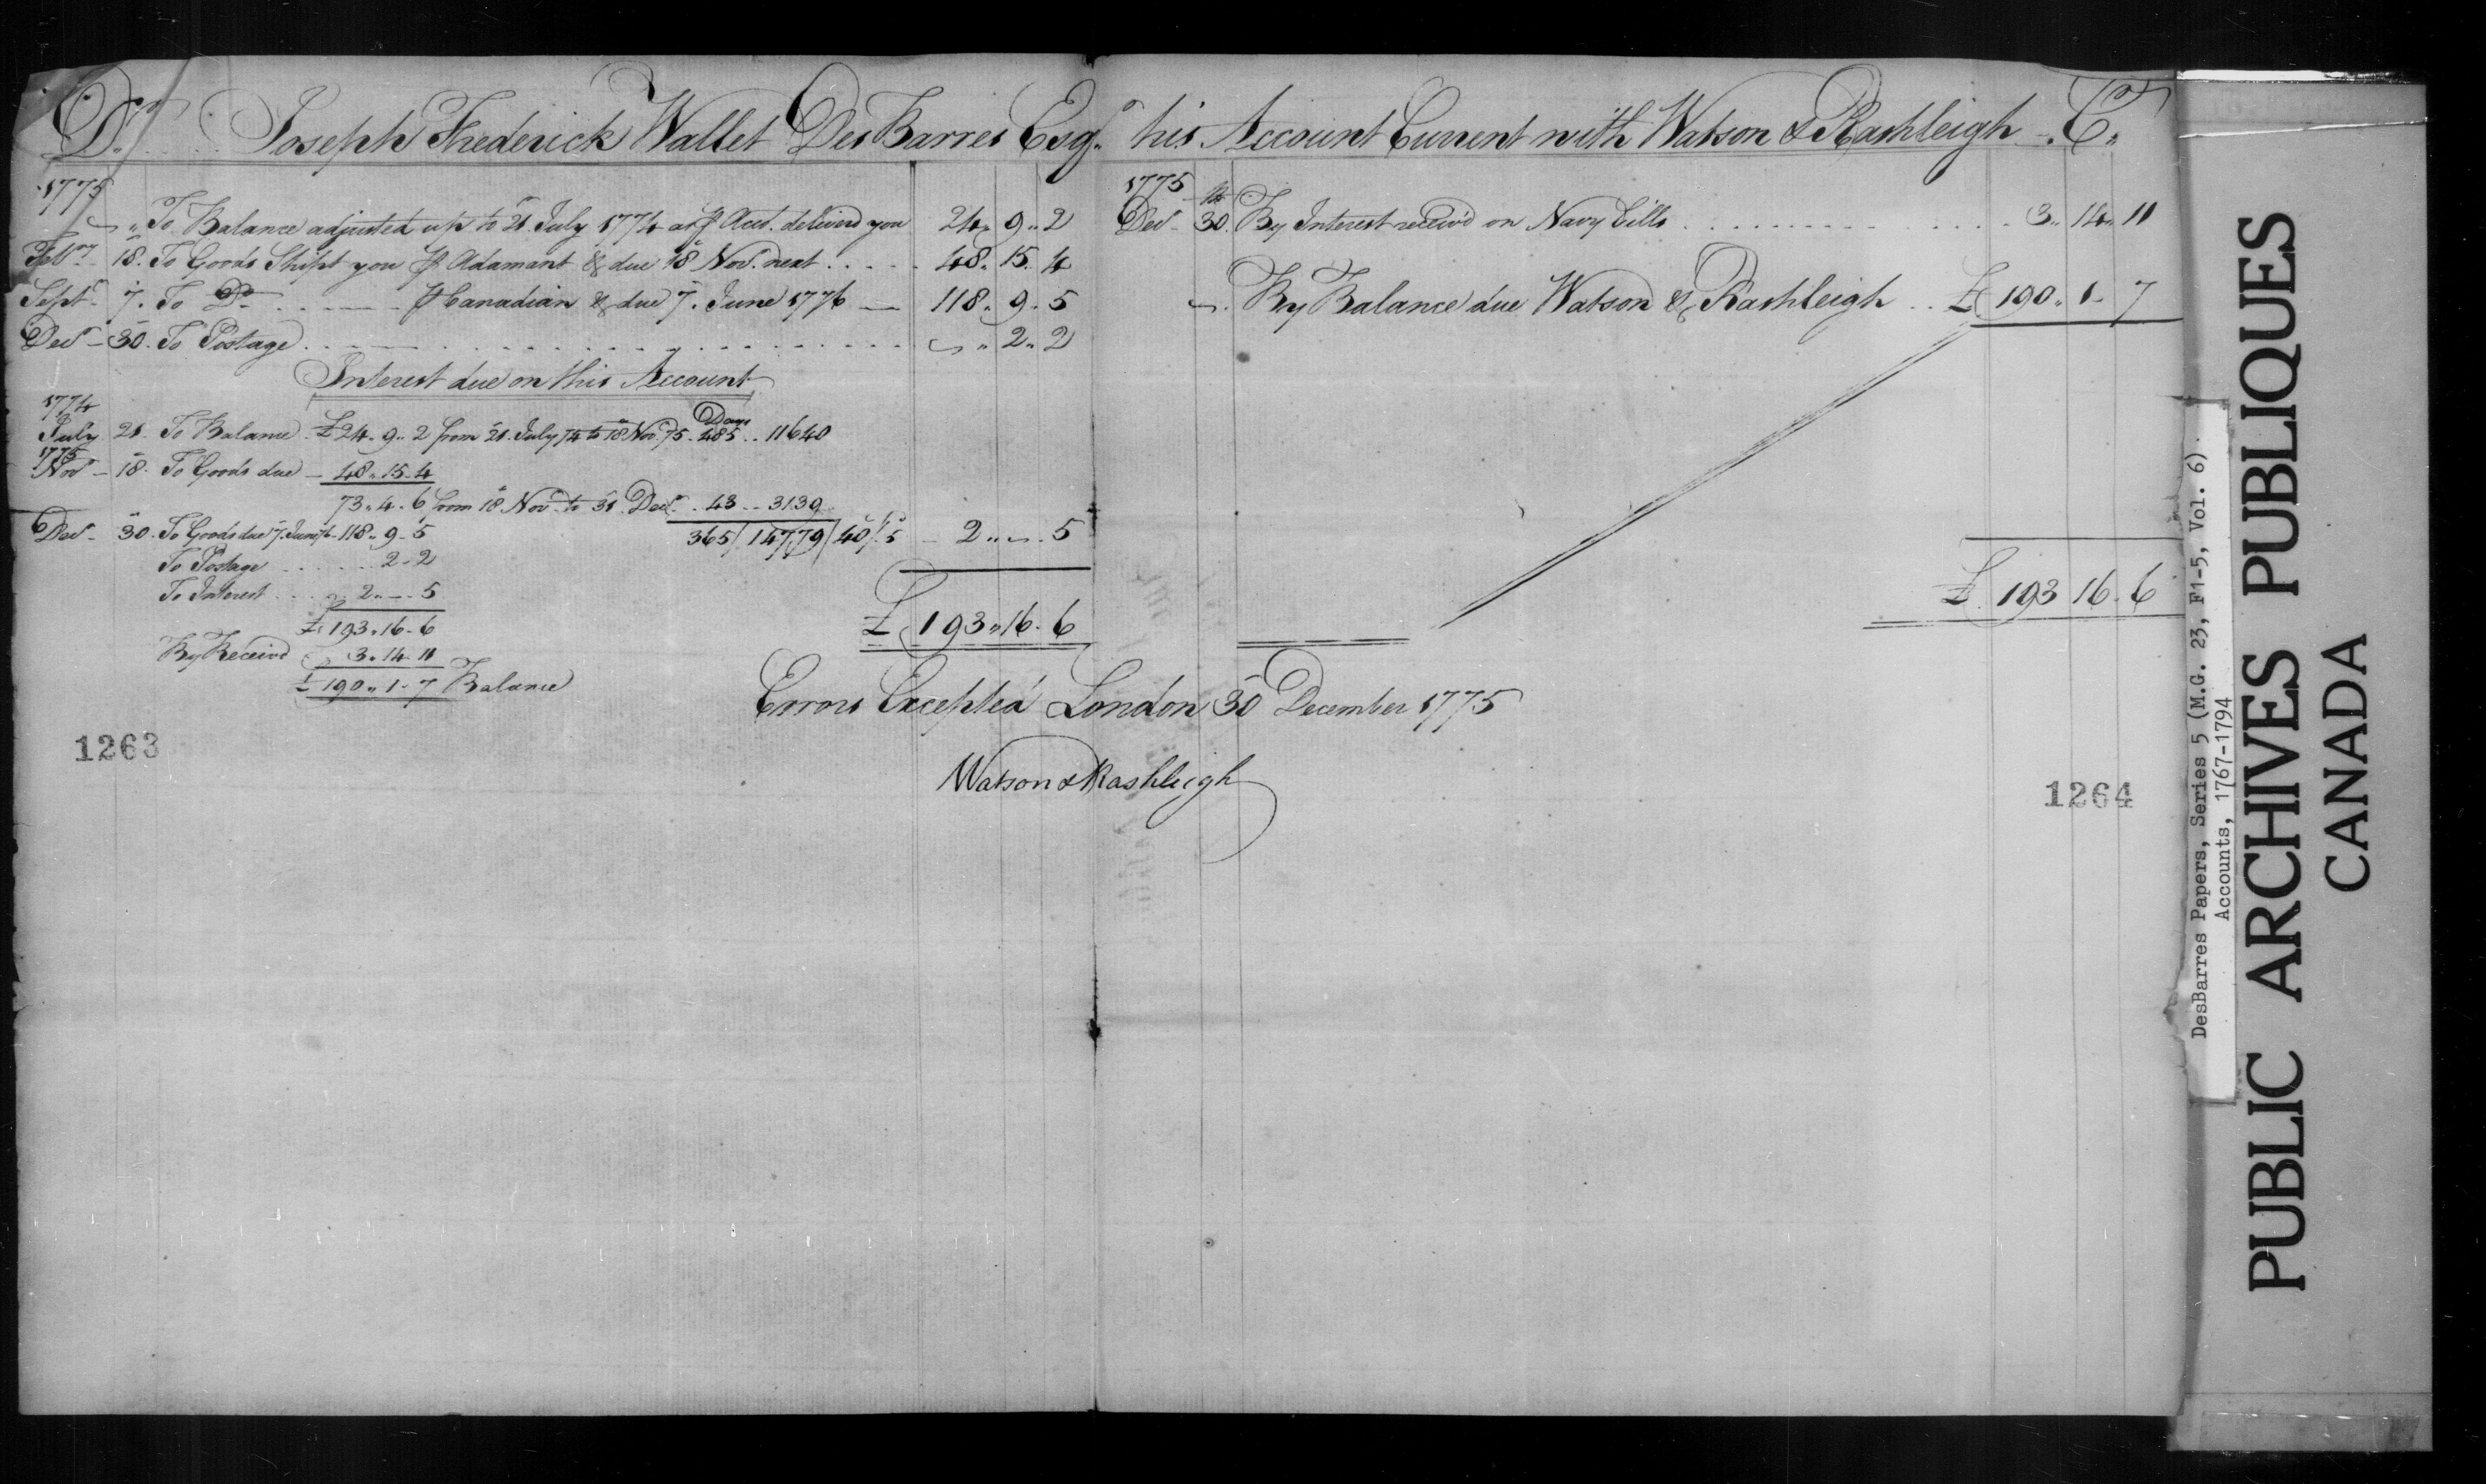 Dr. Joseph Frederick Wallet DesBarres Esqr. his Account Current with Watson & Rashleigh Cr.
1775
" To Balance adjusted up to 21 July 1774 as p Acct. deliverd you 24 " 9 " 2
Febry. 18. To Goods Shipt you p Adamant & due 18 Novr. next 48 " 15 " 4
Septr. 7. To Do. p Canadian & due 7. June 1776 118 " 9 " 5
Decr. 30. To Postage " 2 " 2
Interest due on this Account
1774
Days
July 21. To Balance £24 " 9 " 2 from 21. July 74 to 18 Nov. 75. 485 .. 11640
1775
Novr. 18. To Goods due 48 " 15 " 4
73 " 4 " 6 from 18 Novr. to 31 Decr. 43 .. 3139
Decr. 30. To Goods due 7. June 76 118 " 9 " 5 365/ 14779 /40/. 5 2 " " 5
To Postage 2 " 2
To Interest 2 " - 5
£193 " 16 " 6
£193 " 16 " 6
By Receivd 3 " 14 " 11
£190 " 1 " 7 Balance
1775
Decr. 30. By Interest receiv'd on Navy bills 3 " 14 " 11
By Balance due Watson & Rashleigh £190 " 1 " 7
£193 16 " 6
Errors Excepted London 30 December 1775
Watson & Rashleigh
1263
1264
DesBarres Papers, Series 5 (M.G. 23, F1-5, Vol. 6)
Accounts, 1767-1794
PUBLIC ARCHIVES PUBLIQUES
CANADA